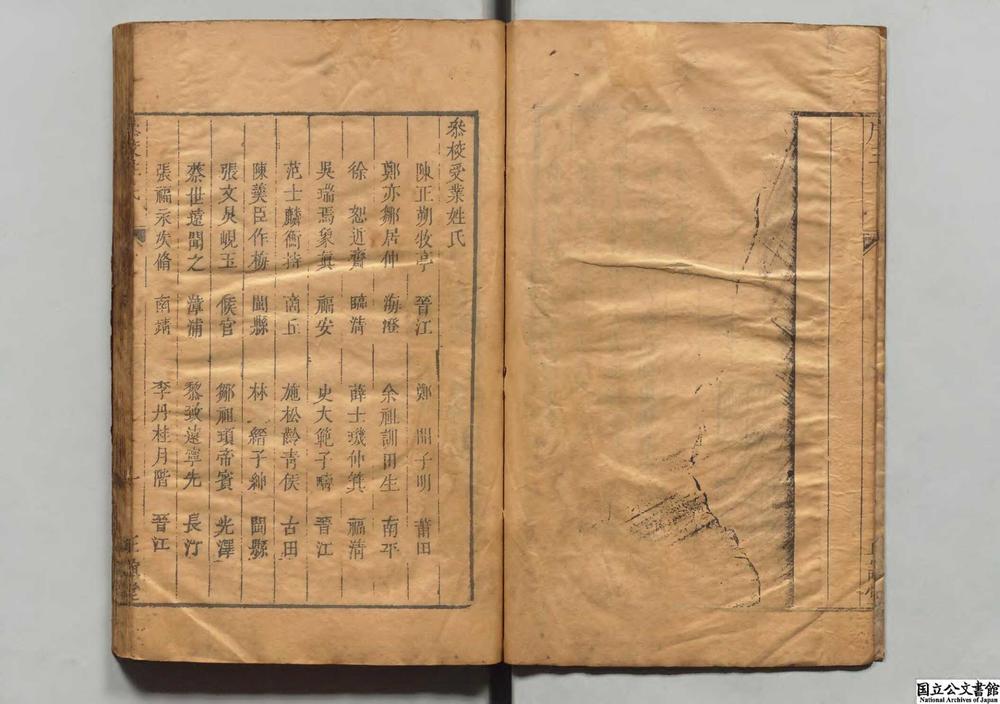 叅校受業姓氏
陳正朔牧亭 晉江 鄭 開子明 莆田
鄭亦鄒居仲 海澄 余祖訓田生 南平
徐 恕近齋 臨清 薛士璣仲箕 福清
吳瑞焉象眞 福安 史大範子疇 晉江
范士 衡持 商丘 施松齡青侯 古田
陳羙臣作梅 閩縣 林 縉子紳 閩縣
張文炅峴玉 侯官 鄒祖 帝賓 光澤
蔡世遠聞之 漳浦 黎致遠寧先 長汀
張福永次脩 南靖 李丹桂月階 晉江
国立公文書館
National Archives of Japan